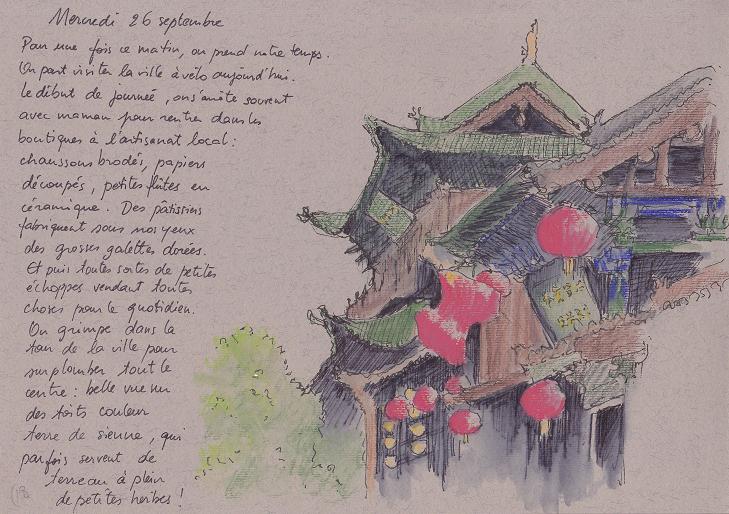 Mercredi 26 septembre
Pour une fois ce matin, on prend notre temps.
On part visiter la ville à vélo aujourd'hui.
Le début de journée, on s'arrête souvent
avec maman pour rentrer dans les
boutiques à l'artisanat local :
chaussons brodés, papiers
découpés, petites flûtes en
céramique. Des pâtissiers
fabriquent sous nos yeux
des grosses galettes dorées.
Et puis toutes sortes de petites
échoppes vendant toutes
choses pour le quotidien.
On grimpe dans la
tour de la ville pour
surplomber tout le
centre : belle vue sur
des toits couleur
terre de sienne, qui
parfois servent de
terreau à plein
de petites herbes !